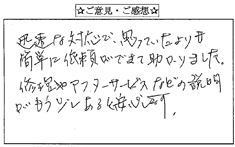 ☆ご意見・ご感想☆
迅速な対応で、思っていたよりも
簡単に依頼ができて助かりました。
修理やアフターサービスなどの説明
がもう少しあると安心です。